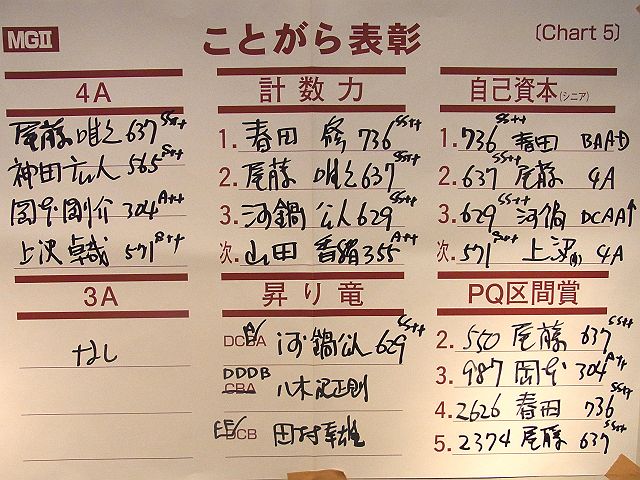 MGⅡ ことがら表彰 〔Chart 5〕
4A
尾藤 唯之 637 SS++
神田 広人 565 S++
岡本 剛介 304 A++
上沢 卓哉 571 S++
3A
なし
計数力
1. 春田 736 SS++
2. 尾藤 唯之 637 SS++
3. 河鍋 公人 629 SS++
次. 山田 香緒 355 A++
昇り竜
DCBA 河鍋公人 629 SS++
DDDB
CBA 八木 正則
DCB 田村 幸雄
自己資本(シニア)
1. 736 SS++ 春田 BAAD
2. 637 SS++ 尾藤 4A
3. 629 SS++ 河鍋 DCAA↑
次. 571 S++ 上沢 4A
PQ区間賞
2. 550 尾藤 637 SS++
3. 987 岡本 304 A++
4. 2626 春田 736 SS++
5. 2374 尾藤 637 SS++